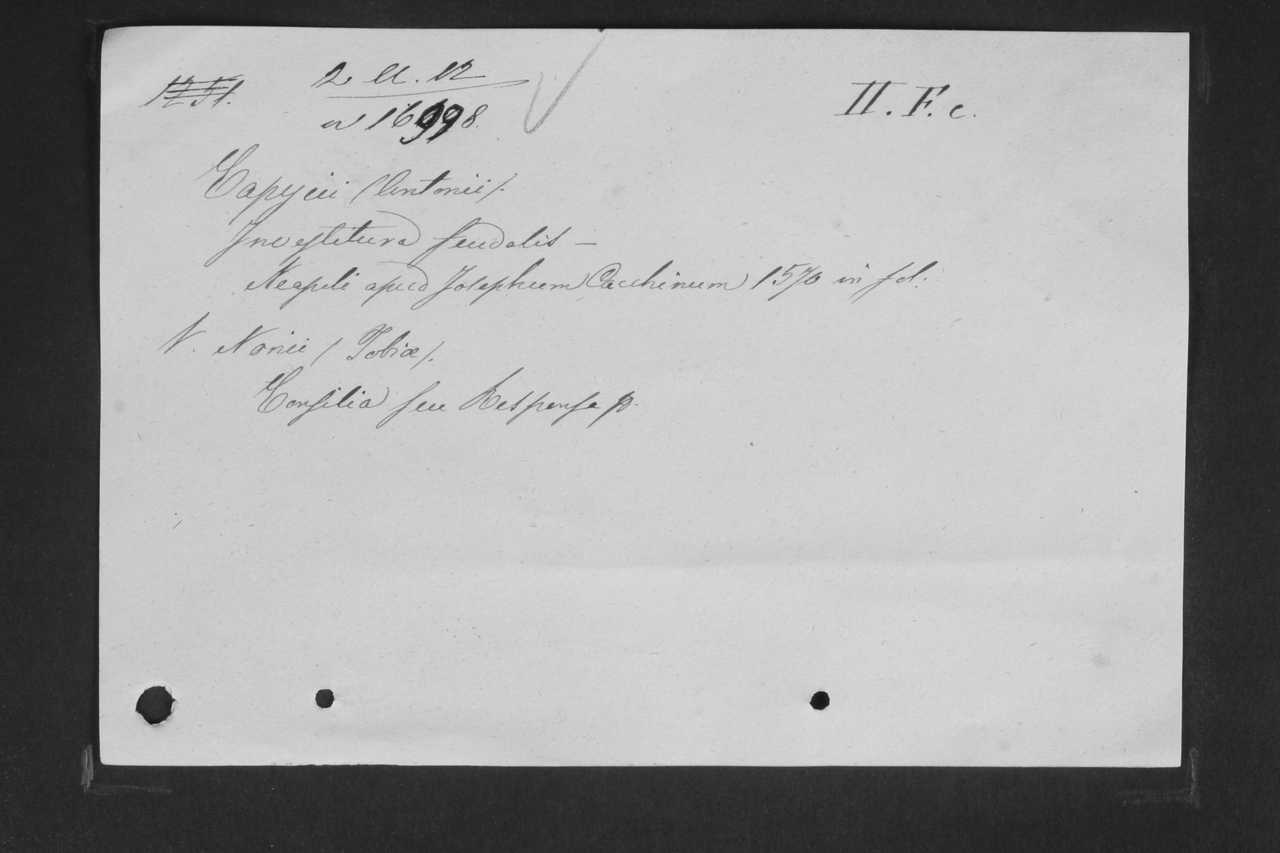 1251.
2 U. 12
ex 16998.
II. F. c.
Capycii (Antonii).
Investitura feudalis –
Neapoli apud Josephum Cacchinum 1570 in fol:
V. Nonii (Tobiæ).
Consilia seu Responsa p.